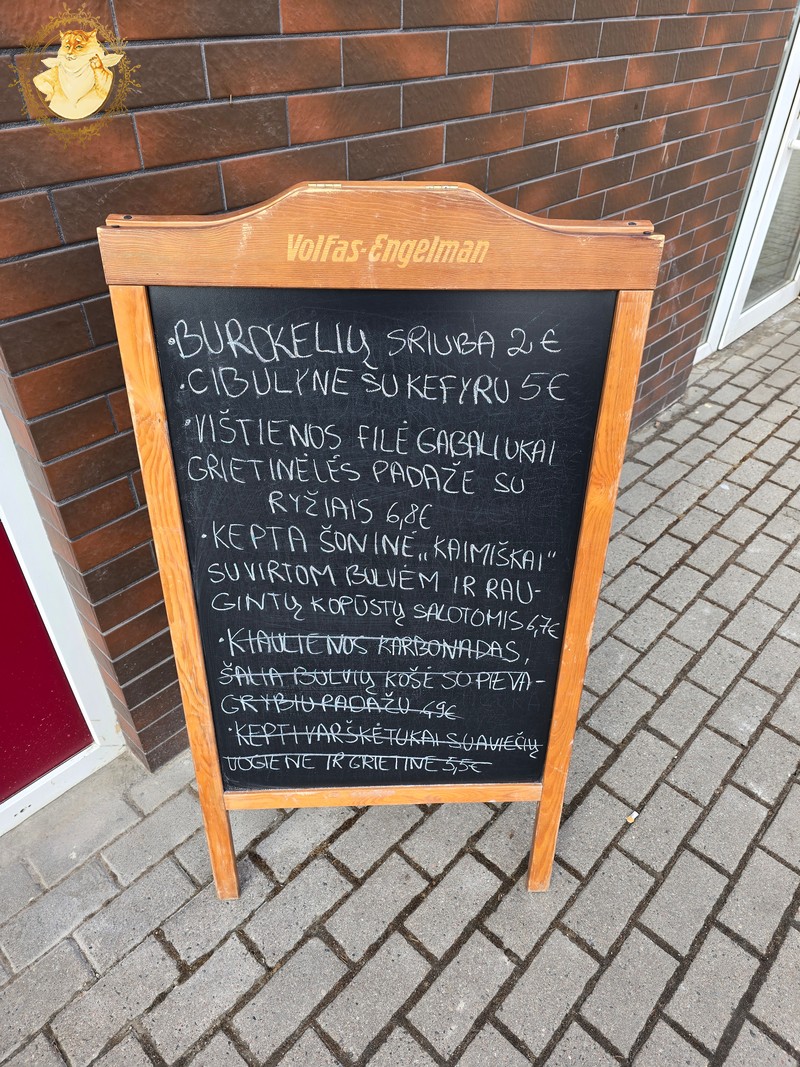 Volfas Engelman
• BUROKĖLIŲ SRIUBA 2€
• CIBULYNĖ SU KEFYRU 5€
• VIŠTIENOS FILĖ GABALIUKAI
GRIETINĖLĖS PADAŽE SU
RYŽIAIS 6,8€
• KEPTA ŠONINĖ „KAIMIŠKAI"
SU VIRTOM BULVĖM IR RAU-
GINTŲ KOPŪSTŲ SALOTOMIS 6,7€
• KIAULIENOS KARBONADAS,
ŠALIA BULVIŲ KOŠĖ SU PIEVA-
GRYBIŲ PADAŽU 49€
• KEPTI VARŠKĖTUKAI SU AVIEČIŲ
UOGIENE IR GRIETINE 5,5€